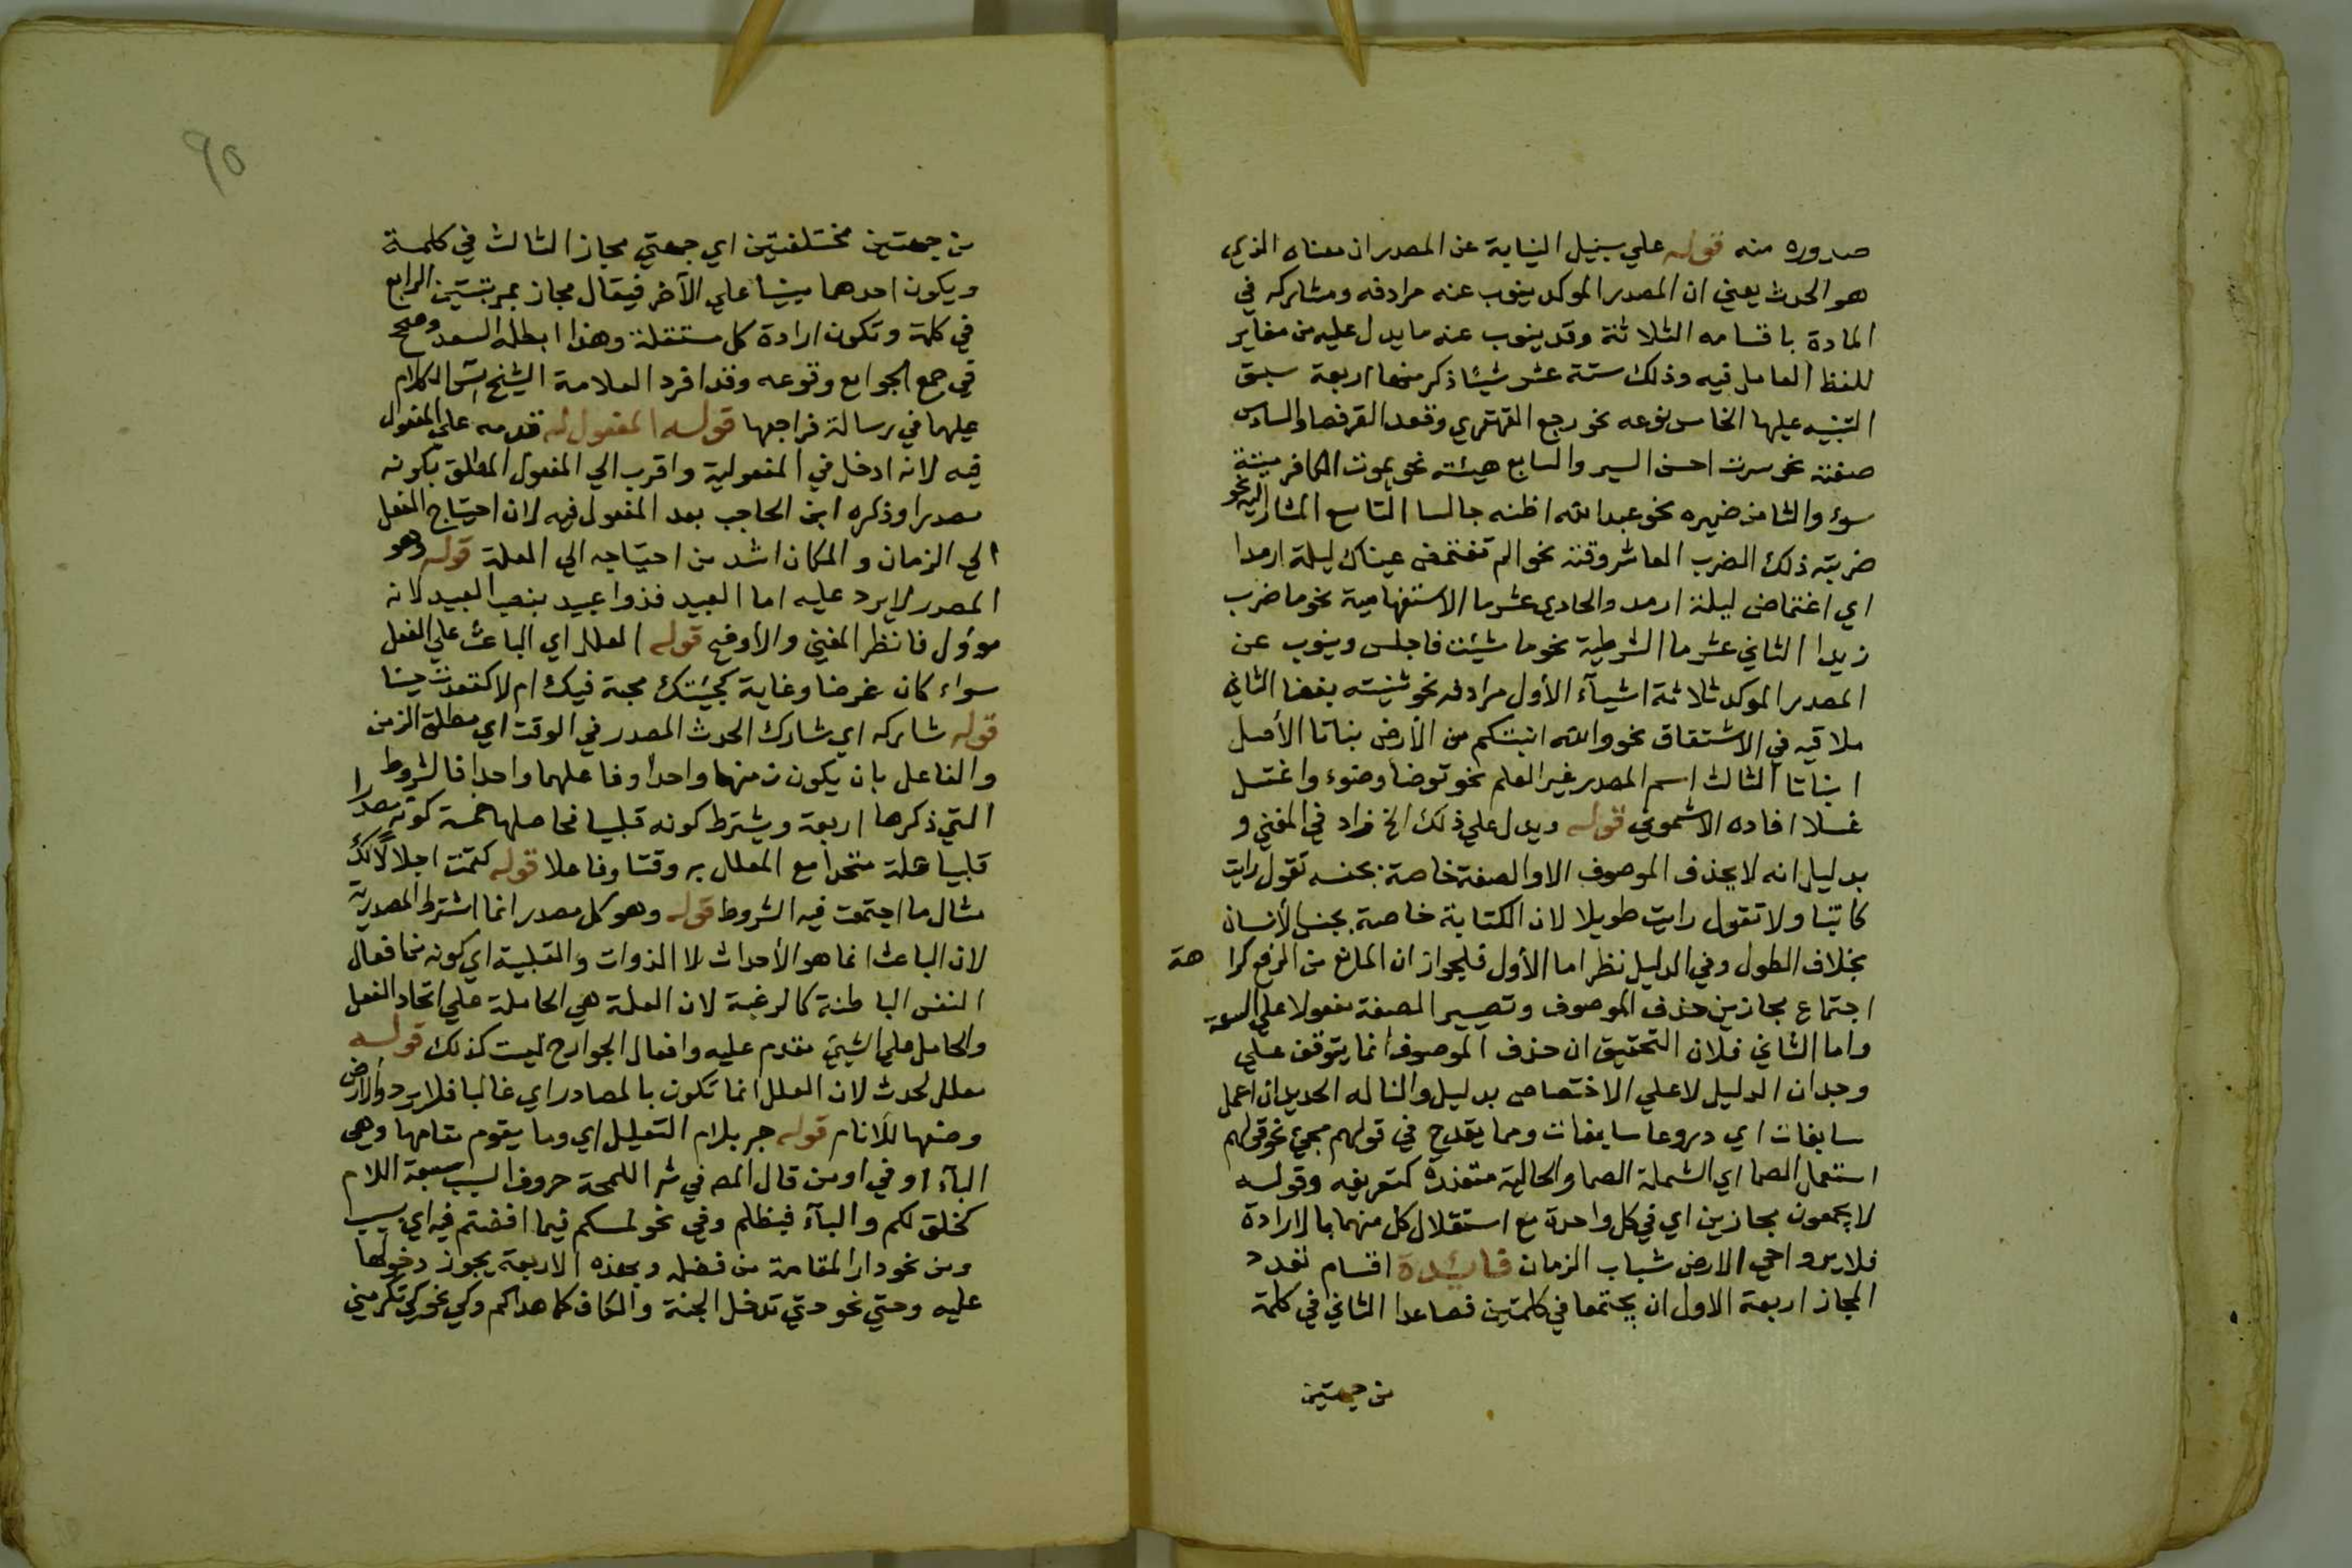 صدوره منه قوله علي سبيل النيابة عن المصدر ان معناه الذي
هو الحدث يعني ان المصدر الموكد ينوب عنه مرادفه ومشاركه في
المادة باقسامه الثلاثة وقد ينوب عنه ما يدل عليه من مغاير
للفظ العامل فيه وذلك ستة عشر شيئا ذكر منها اربعة سبق
التنبيه عليها الخامس نوعه نحو رجع القهقري وقعد القرفصا والسادس
صفته نحو سرت احسن السير والسابع هيئته نحو يموت الكافر ميتة
سوء والثامن ضميره نحو عبد الله اظنه جالسا التاسع المشار اليه نحو
ضربته ذلك الضرب العاشر وقته نحو الم تغتمض عيناك ليلة ارمدا
اي اغتماض ليلة ارمد والحادي عشر ما الاستفهامية نحو ما ضرب
زيدا الثاني عشر ما الشرطية نحو ما شئت فاجلس وينوب عن
المصدر الموكد ثلاثة اشيآء الأول مرادفه نحو شنيته بغضا الثاني
ملاقيه في الاشتقاق نحو والله انبتكم من الأرض نباتا الأصل
انباتا الثالث اسم المصدر غير العلم نحو توضا وضوء واغتسل
غسلا افاده الاشموني قوله ويدل علي ذلك الخ زاد في المغني و
بدليل انه لا يحذف الموصوف الا والصفة خاصة بجنسه تقول رايت
كاتبا ولا تقول رايت طويلا لان الكتابة خاصة بجنس الأنسان
بخلاف الطول وفي الدليل نظر اما الأول فلجواز ان المانع من الرفع كراهة
اجتماع مجازين حذف الموصوف وتصيير الصفة مفعولا علي السعة
واما الثاني فلان التحقيق ان حذف الموصوف انما يتوقف علي
وجدان الدليل لا علي الاختصاص بدليل والنا له الحديد ان اعمل
سابغات اي دروعا سابغات ومما يقدح في قولهم مجيء نحو قولهم
اشتمل الصما اي الشملة الصما والحالية متعذرة كتعريفه وقوله
لا يجمعون مجازين اي في كل واحدة مع استقلال كل منهما بالارادة
فلا يرد احي الارض شباب الزمان فائدة اقسام تعدد
المجاز اربعة الاول ان يجتمعا في كلمتين فصاعدا الثاني في كلمة
من جهتين
٩٥
من جهتين مختلفتين اي جهتي مجاز الثالث في كلمة
ويكون احدهما مبنيا علي الآخر فيقال مجاز بمرتبتين الرابع
في كلمة وتكون ارادة كل مستقلة وهذا ابطله السعد وصحح
في جمع الجوامع وقوعه وقد افرد العلامة الشيخ الكلام
عليها في رسالة فراجعها قوله المفعول له قدمه علي المفعول
فيه لانه ادخل في المفعولية واقرب الي المفعول المطلق بكونه
مصدرا وذكره ابن الحاجب بعد المفعول فيه لان احتياج الفعل
الي الزمان والمكان اشد من احتياجه الي العلة قوله وهو
المصدر لا يرد عليه اما العبيد فذوا عبيد بنصب العبيد لانه
موؤل فانظر المغني والأوضح قوله المعلل اي الباعث علي الفعل
سواء كان غرضا وغاية كجئتك محبة فيك ام لا كقعدت جبنا
قوله شاركه اي شارك الحدث المصدر في الوقت اي مطلق الزمن
والفاعل بان يكون زمنهما واحدا وفاعلهما واحدا فالشروط
التي ذكرها اربعة ويشترط كونه قلبيا فحاصلها خمسة كونه مصدرا
قلبيا علة متحدا مع المعلل به وقتا وفاعلا قوله كقمت اجلالا لك
مثال ما اجتمعت فيه الشروط قوله وهو كل مصدر انما اشترط المصدرية
لان الباعث انما هو الأحداث لا الذوات والقلبية اي كونه من افعال
النفس الباطنة كالرغبة لان العلة هي الحاملة علي اتحاد الفعل
والحامل علي الشيئ مقدم عليه وافعال الجوارح ليست كذلك قوله
معلل لحدث لان العلل انما تكون بالمصادر اي غالبا فلا يرد والأرض
وضعها للأنام قوله جر بلام التعليل اي وما يقوم مقامها وهي
البآء او في او من قال المص في شرح اللمحة حروف السبب سبعة اللام
كخلق لكم والبآء فبظلم وفي نحو لمسكم فيما افضتم فيه اي بسبب
ومن نحو دار المقامة من فضله وبهذه الاربعة يجوز دخولها
عليه وحتي نحو حتي تدخل الجنة والكاف كما هداكم وكي نحو كي تكرمني